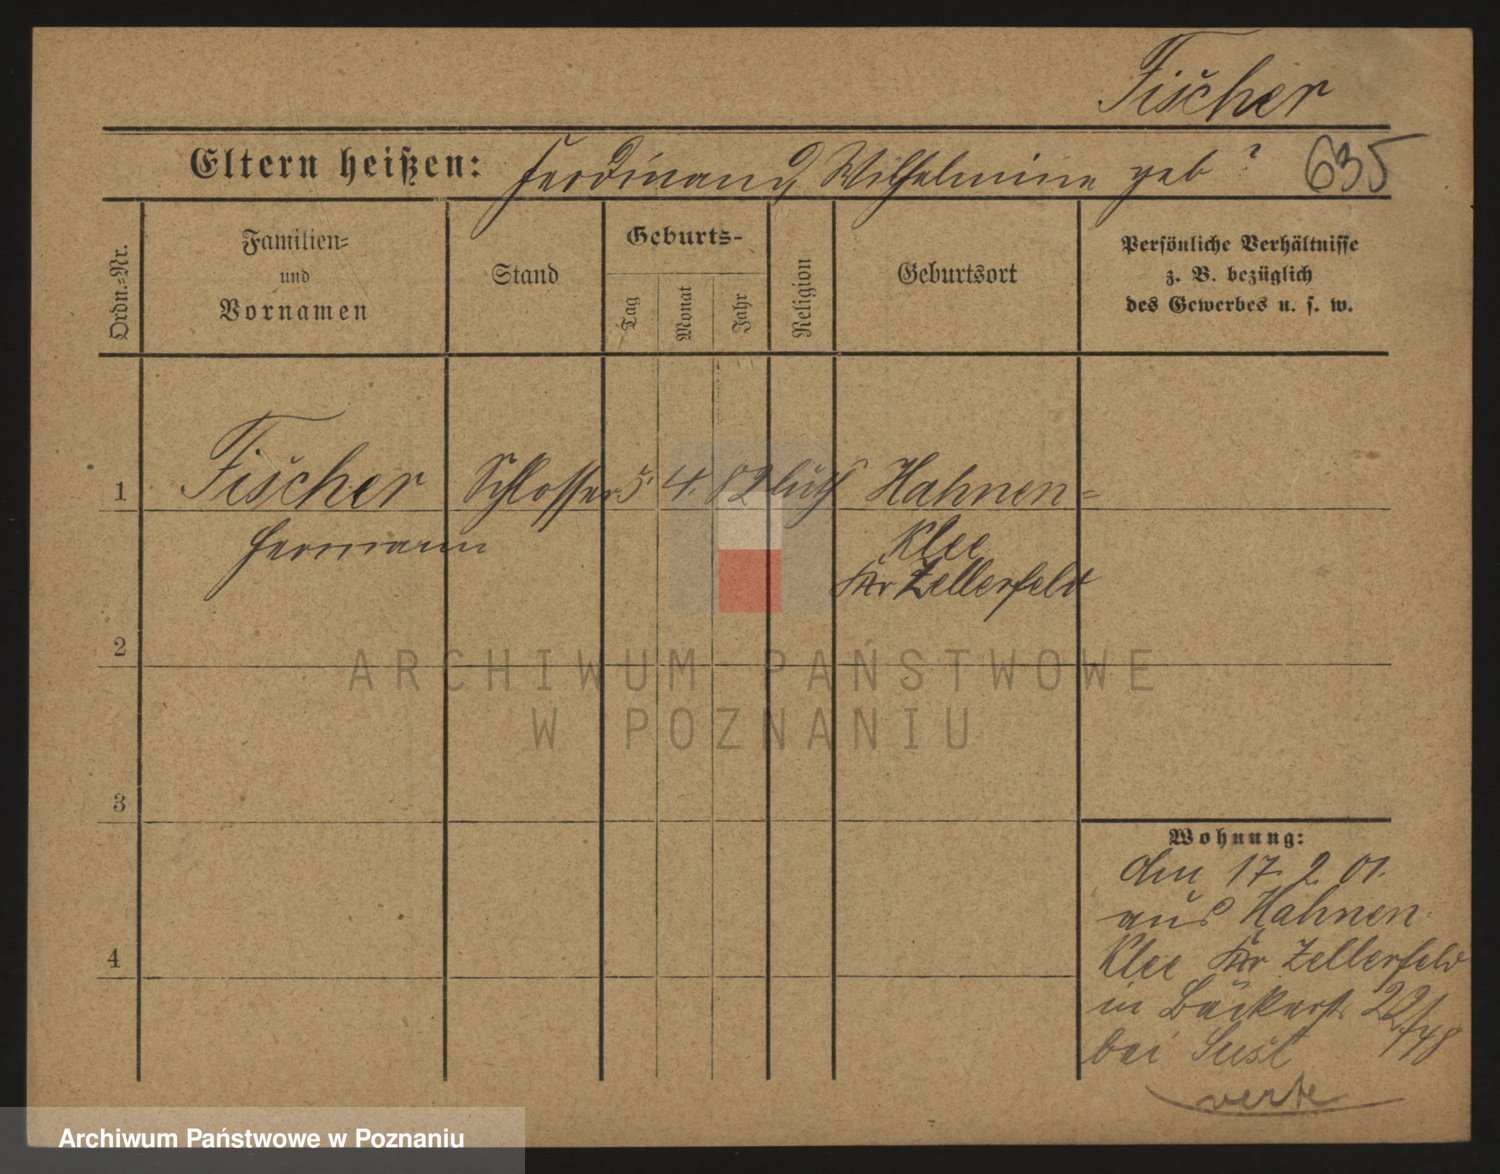 Fischer
Eltern heißen: Ferdinand, Wilhelmine geb ? 635
Ordn.-Nr.
Familien-
und
Vornamen
Stand
Geburts-
Tag
Monat
Jahr
Religion
Geburtsort
Persönliche Verhältnisse
z. B. bezüglich
des Gewerbes u. s. w.
1 Fischer Schlosser 5. 4. 82 luth Hahnen-
Hermann Klee
Kr Zellerfeld
2
ARCHIWUM PAŃSTWOWE
W POZNANIU
3
Wohnung:
den 17. 2. 01.
aus Hahnen-
4
Klee Kr Zellerfeld
in Bäckerst. 22/
bei
verte
Archiwum Państwowe w Poznaniu